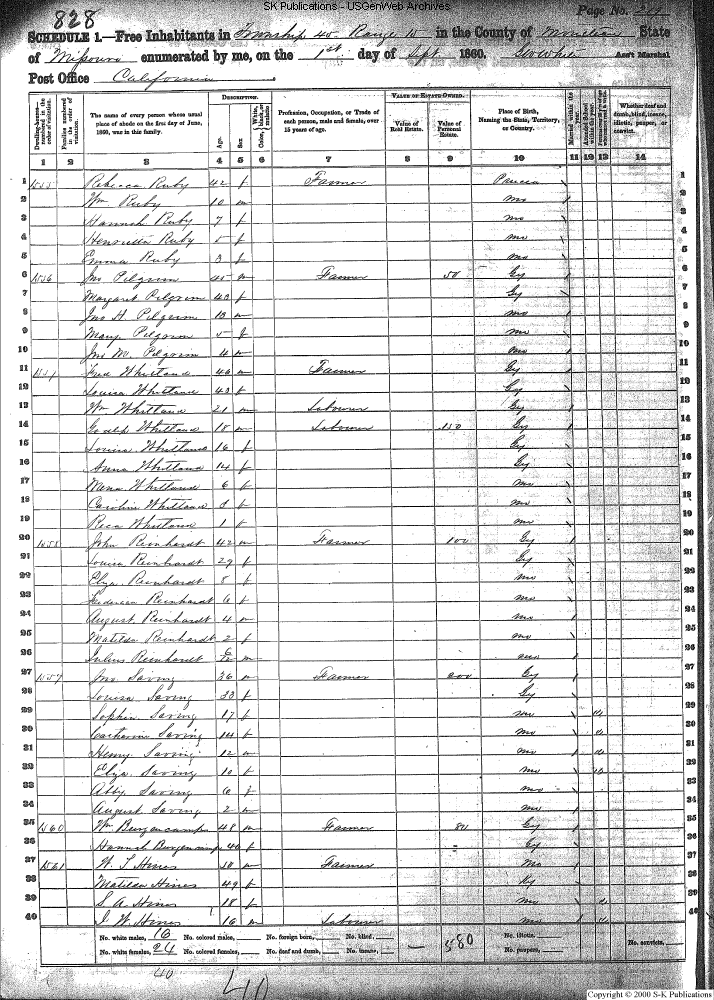 SK Publications - USGenWeb Archives
828
Page No.
SCHEDULE 1.—Free Inhabitants in Township 45 Range 15 in the County of Moniteau State
of Missouri enumerated by me, on the 1st day of Sept 1860. Geo White Ass't Marshal
Post Office California
Dwelling-houses—numbered in the order of visitation.
Families numbered in the order of visitation.
The name of every person whose usual place of abode on the first day of June, 1860, was in this family.
DESCRIPTION.
Age.
Sex
Color, White, black, or mulatto
Profession, Occupation, or Trade of each person, male and female, over 15 years of age.
VALUE OF ESTATE OWNED.
Value of Real Estate.
Value of Personal Estate.
Place of Birth, Naming the State, Territory, or Country.
Married within the year.
Attended School within the year.
Whether deaf and dumb, blind, insane, idiotic, pauper, or convict.
1 2 3 4 5 6 7 8 9 10 11 12 13 14
1 Rebecca Ruby 42 f Farmer 1
2 Wm Ruby 10 m Mo 2
3 Hannah Ruby 7 f Mo 3
4 Henrietta Ruby 5 f Mo 4
5 Emma Ruby 3 f Mo 5
6 1556 Jno Pilgrim 45 m Farmer 50 Gy 6
7 Margaret Pilgrim 43 f Gy 7
8 Jno H. Pilgrim 13 m Mo 8
9 Mary Pilgrim 5 f Mo 9
10 Jno M. Pilgrim 4 m Mo 10
11 1557 Fred Whittland 46 m Farmer Gy 11
12 Louisa Whittland 43 f Gy 12
13 Wm Whittland 21 m Labourer Gy 13
14 Whittland 18 m Labourer 150 Gy 14
15 Louisa Whittland 16 f Gy 15
16 Anna Whittland 14 f Gy 16
17 Mena Whittland 6 f Mo 17
18 Caroline Whittland f Mo 18
19 Whittland 1 f Mo 19
20 1558 John Reinhardt 42 m Farmer 100 Gy 20
21 Louisa Reinhardt 29 f Gy 21
22 Eliza Reinhardt 8 f Mo 22
23 Reinhardt 6 f Mo 23
24 August Reinhardt 4 m Mo 24
25 Matilda Reinhardt 2 f Mo 25
26 Julius Reinhardt m Mo 26
27 1559 Jno Saving 36 m Farmer Gy 27
28 Louisa Saving 33 f Gy 28
29 Sophia Saving 17 f Mo 29
30 Catharine Saving 14 f Mo 30
31 Henry Saving 12 m Mo 31
32 Eliza Saving 10 f Mo 32
33 Abby Saving 6 f Mo 33
34 August Saving 2 m Mo 34
35 1560 Wm Burgencamp 48 m Farmer 80 Gy 35
36 Hannah Burgencamp 40 f Gy 36
37 1561 W. T. Hines m Farmer Mo 37
38 Matilda Hines 49 f Ky 38
39 S. A. Hines 18 f Mo 39
40 J. W. Hines 16 m Labourer Mo 40
No. white males, 16 No. colored males, No. foreign born, No. blind, No. idiotic,
No. white females, 24 No. colored females, No. deaf and dumb, No. insane, — 580 No. paupers, No. convicts,
40
40
Copyright © 2000 S-K Publications